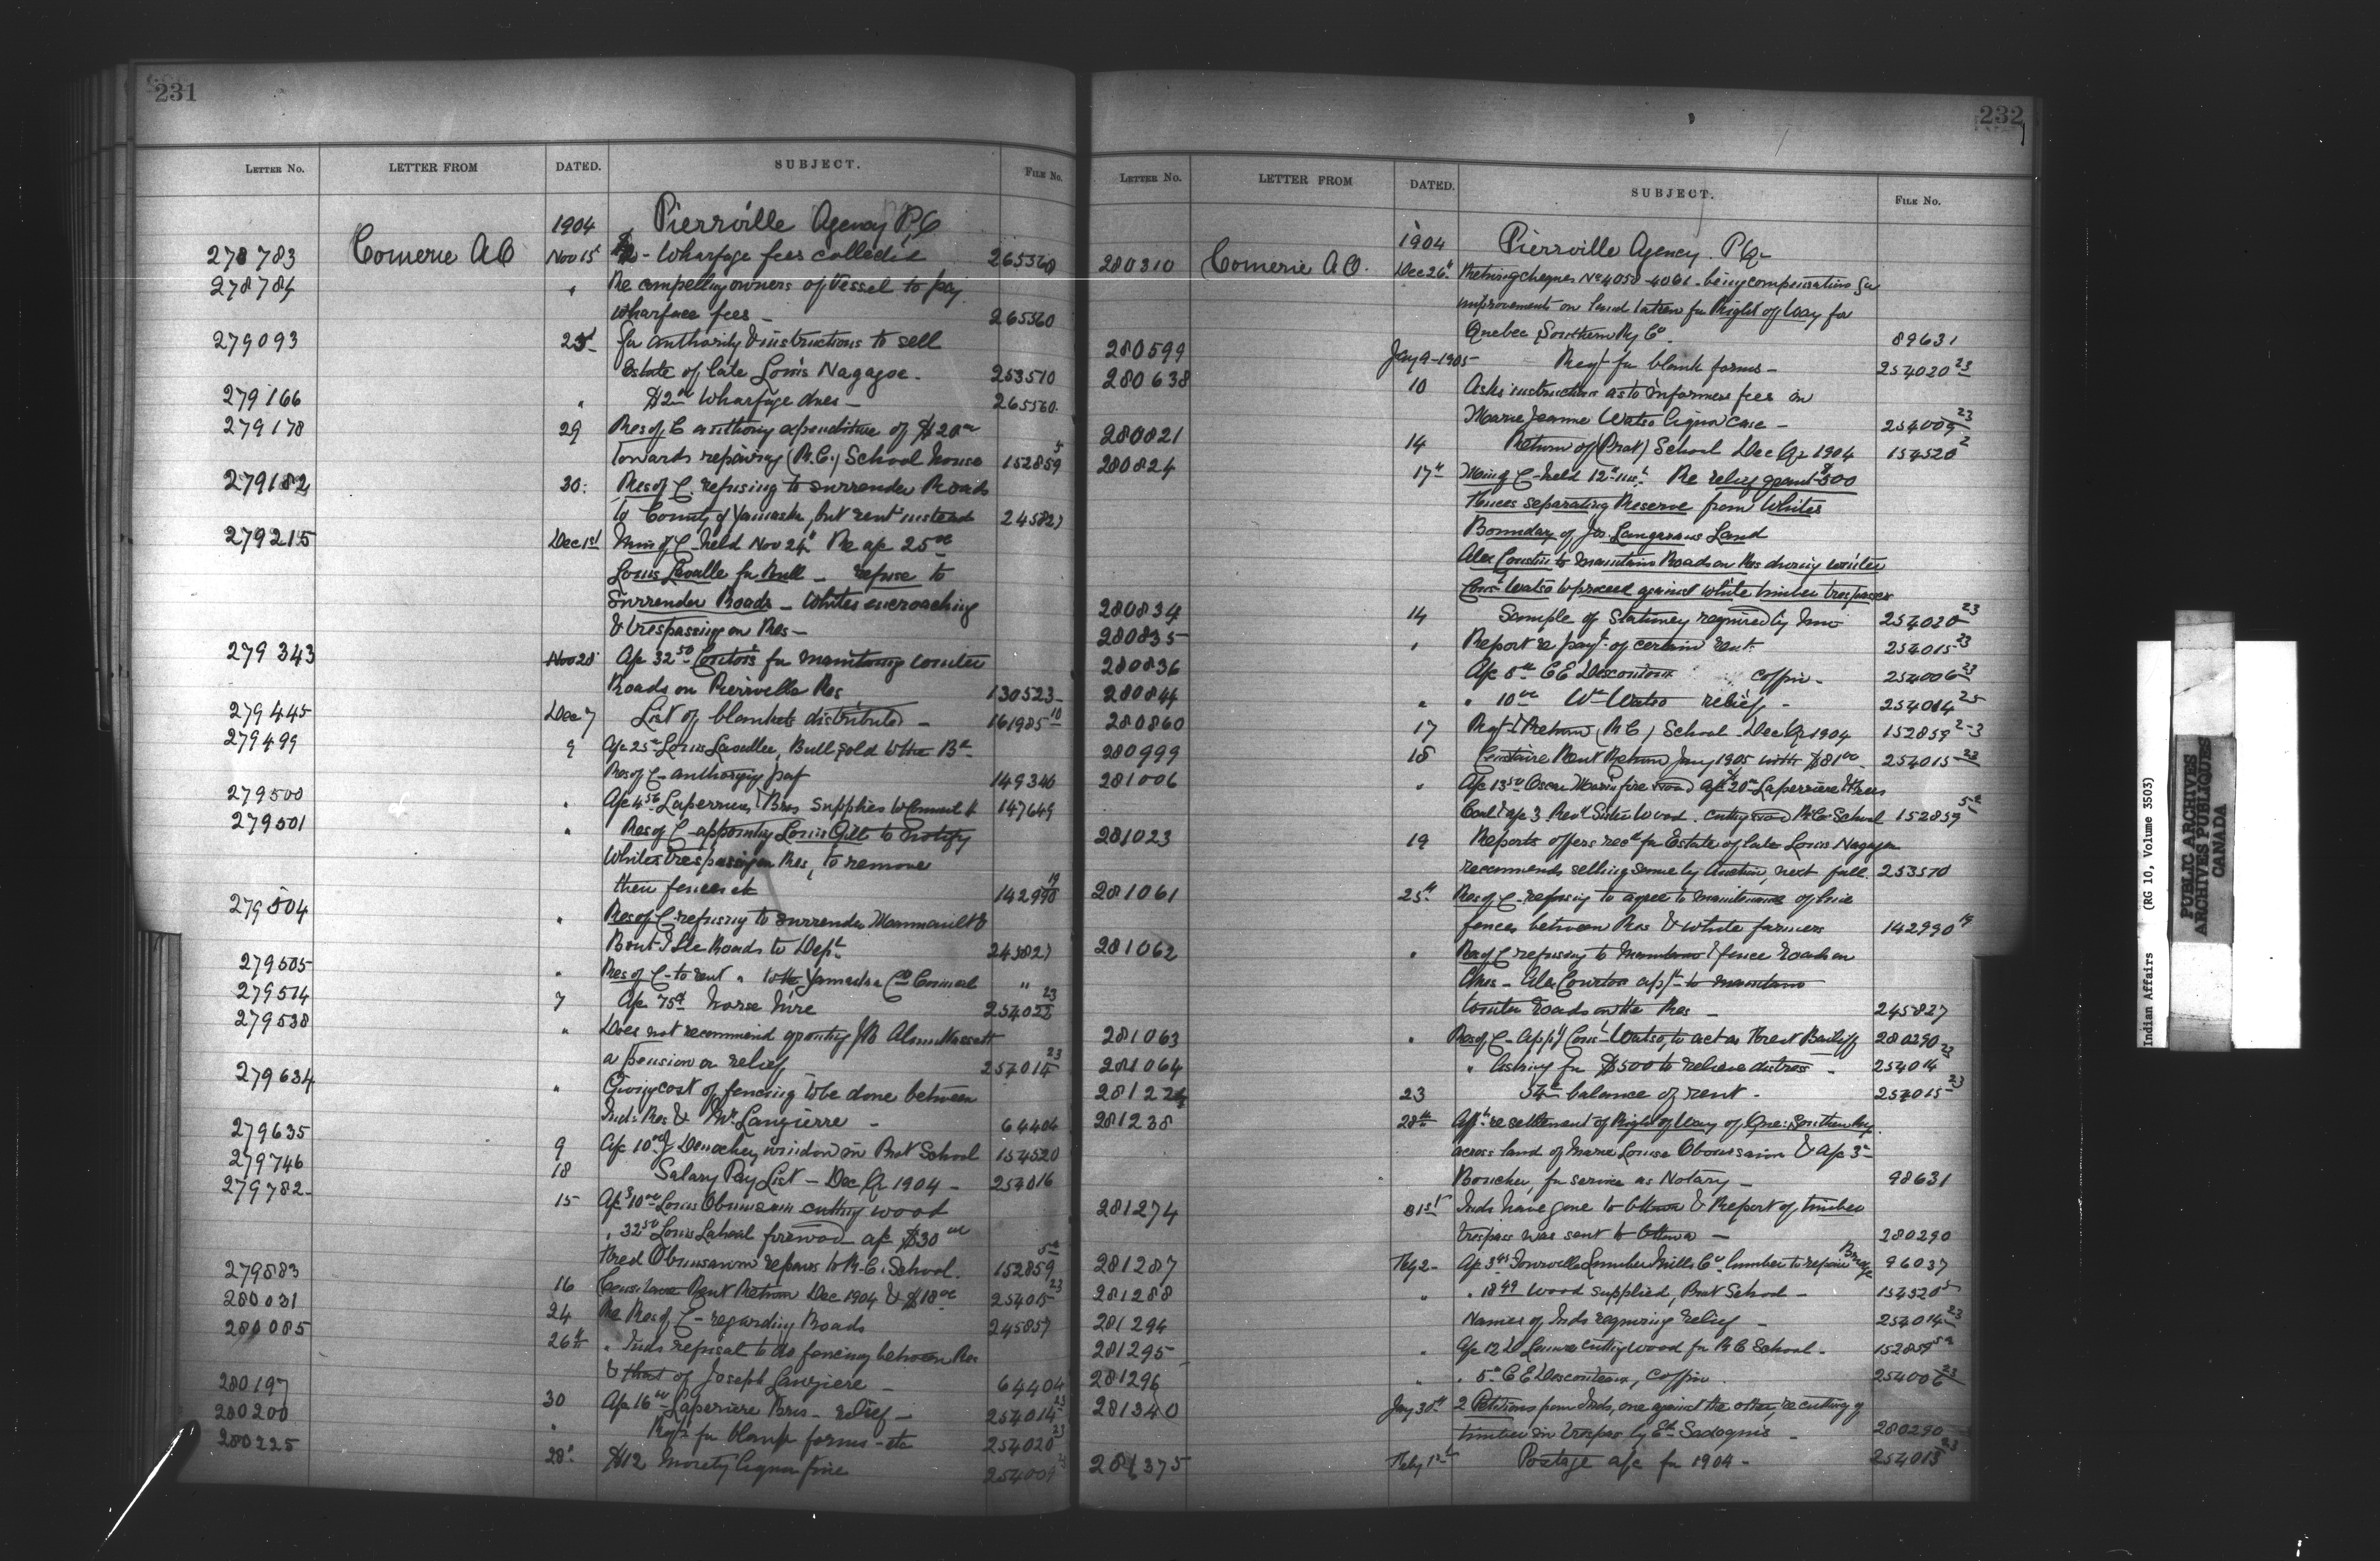 231
LETTER NO. LETTER FROM DATED. SUBJECT. FILE NO.
1904 Pierrville Agency P.Q
278783 Comerie A O Nov 15 - Wharfage fees collected 265360
278784 " Re compelling owners of Vessel to pay
Wharfage fees - 265360
279093 25 for authority & instructions to sell
Estate of late Louis Nagagoe. 253510
279166 " $2 Wharfage dues - 265360
279178 29 Res of C authoring expenditure of $20
towards repairing (R.C.) School house 152859
279182 30 Res of C. refusing to surrender Roads
to County of Yamaska, but rent instead 245827
279215 Dec 1st Min of C - held Nov 24 Re a/c 25
Louis Lavalle for Bull - refuse to
Surrender Roads - Whites encroaching
& trespassing on Res -
279343 Nov 28 A/c 32 50 for maintaining winter
Roads on Pierrville Res 130523
279445 Dec 7 List of blankets distributed - 161985 10
279499 9 A/c 25 Louis Lavallee, Bull sold to the Bd
Res of C - authorizing pay 149346
279500 " A/c 4 56 Bros supplies to 147649
279501 " Res of C - appointing Louis Gill to notify
Whites trespassing on Res, to remove
their fences etc 142990 19
279504 " Res of C - refusing to surrender &
Roads to Dept 245827
279505 " Res of C - to rent " to the Yamaska Co Council "
279514 7 A/c 75 horse hire 254022 23
279538 " Does not recommend granting
a pension or relief 254014 23
279634 " Giving cost of fencing to be done between
Ind. Res & Mr. Langierre - 64404
279635 9 A/c 10 J window in Prot School 154520
279746 18 Salary Pay List - Dec Qr 1904 - 254016
279782 15 A/c 10 Louis Obumsawin cutting wood
" 32 50 Louis firewood a/c $30
Obumsawin repairs to R.C. School. 152859
279883 16 Rent Return Dec 1904 & $18 254015 23
280031 24 Re Res of C - regarding Roads 245857
280085 26th " Inds refusal to do fencing between Res
& that of Joseph Langiere - 64404
280197 30 A/c 16 Laperiere Bros - relief - 254014 23
280200 " for blank forms - etc 254020 23
280225 28 $12 Moiety liquor fine 254009
232
LETTER NO. LETTER FROM DATED. SUBJECT. FILE NO.
1904 Pierrville Agency. P.Q.
280310 Comerie A O. Dec 26 cheques No 4058-4061 - being compensation for
improvements on land taken for Right of Way for
Quebec Southern Ry Co. 89631
280599 Jany 9-1905 Reqt for blank forms - 254020 23
280638 10 Asks instruction as to informers fees in
Marie Jeanne Watso liquor case - 254009 23
280821 14 Return of (Prot) School Dec Qr 1904 154520 2
280824 17 Min of C - held 12 Re relief grant $500
Fences separating Reserve from Whites
Boundary of Land
Alex to maintain Roads on Res during winter
Watso to proceed against white timber trespassers
280834 14 Sample of Stationery required by him 254020 23
280835 " Report re payt of certain rent 254015 23
280836 A/c 5 C E Descoteaux coffin - 254006 23
280844 " " 10 Wm Watso relief - 254014 23
280860 17 & Return (R C) School Dec Qr 1904 152859 2-3
280999 18 Rent Return Jany 1905 with $81 254015 23
281006 " A/c 13 50 Oscar fire wood a/c 20 Laperiere
a/c 3 Sister wood. cutting wood R.C. School 152859
281023 19 Reports offers recd for Estate of late Louis Nagagoe
recommends selling same by Auction, next fall. 253510
281061 25th Res of C - refusing to agree to maintenance of line
fences between Res & white farmers 142990 19
281062 " Res of C refusing to maintain & fence roads on
Res - Alex to maintain
winter roads on the Res - 245827
281063 " Res of C - Watso, to act as Forest Bailiff 280290
281064 " Asking for $500 to relieve distress - 254014 23
23 balance of rent - 254015 23
281238 28th re settlement of Right of Way of Que. Southern Ry
across land of Marie Louise Obumsawin & a/c 3
Boucher, for service as Notary - 98631
281274 31st Inds have gone to Ottawa & Report of timber
trespass was sent to Ottawa - 280290
281287 Feby 2 - A/c 3 Lumber Mills Co. lumber to repair Bridge 96037
281288 " " 18 49 wood supplied, Prot School - 154520
281294 Names of Inds requiring relief - 254014 23
281295 " A/c 12 cutting wood for R C School - 152859
281296 " " 5 C E Descoteaux, coffin 254006 23
281340 Jany 30th 2 Petitions from Inds, one against the other, re cutting of
timber in trespass by - 280290
281375 Feby 1st Postage a/c for 1904 - 254013 23
Indian Affairs (RG 10, Volume 3503)
PUBLIC ARCHIVES
ARCHIVES PUBLIQUES
CANADA